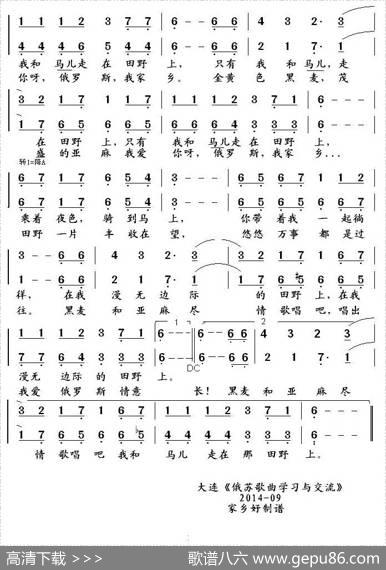 1 1 1 2 3 7 7 6 - 6 6 4 - 3 2 3
4 4 4 5 6 7 7 6 - 6 6 4 - 3 2 3
我和 马儿 走 在 田野 上， 只有 我 和 马儿，走
你呀，俄罗 斯，我家 乡。 金黄 色 黑麦，茂
3 2 1 7 1 6 7 1 2 2 3 7 1 6 - -
1 7 6 5 6 6 7 1 2 2 3 7 1 6 - -
在 田野 上，只有 我和 马儿走 在田野 上，
盛的亚 麻我爱 你呀，俄罗 斯，我家 乡…
转1=降A
6 7 1 7 6 5 6 7 3 - - 6 7 6 5 6 7 1 1 2
6 7 1 7 6 5 6 7 3 - - 6 7 6 5 6 7 6 6 6
乘着 夜色， 骑到马 上， 你带 着我 一 起徜
田野 一片 丰收在 望， 悠悠 万事 都 是过
3 - 6 6 4 3 2 3 3 2 1 7 6 7 1 6 7
1 - 6 6 4 3 2 1 1 7 6 5 6 5 6 6 5
徉，在我 漫无 边际 的 田野 上，在我
往。 黑麦 和亚 麻尽 情歌 唱吧，唱出
1 1 1 2 3 7 1 6 - 6 6 6 - 6 6 4 3 2 3
4 4 4 2 3 7 1 6 - 6 6 6 - 6 6 4 3 2 3
1
2
DC
漫无 边际 的 田野 上。
我爱 俄罗斯 情意 长！ 黑麦 和 亚 麻尽
3 2 1 7 1 6 7 1 1 1 2 3 7 1 6 - -
1 7 6 5 6 6 5 4 4 4 2 3 7 1 6 - -
情 歌唱 吧 我和 马儿 走 在那 田野 上。
大连《俄苏歌曲学习与交流》
2014-09
家乡好制谱
高清下载 >>>
歌谱八六 www.gepu86.com